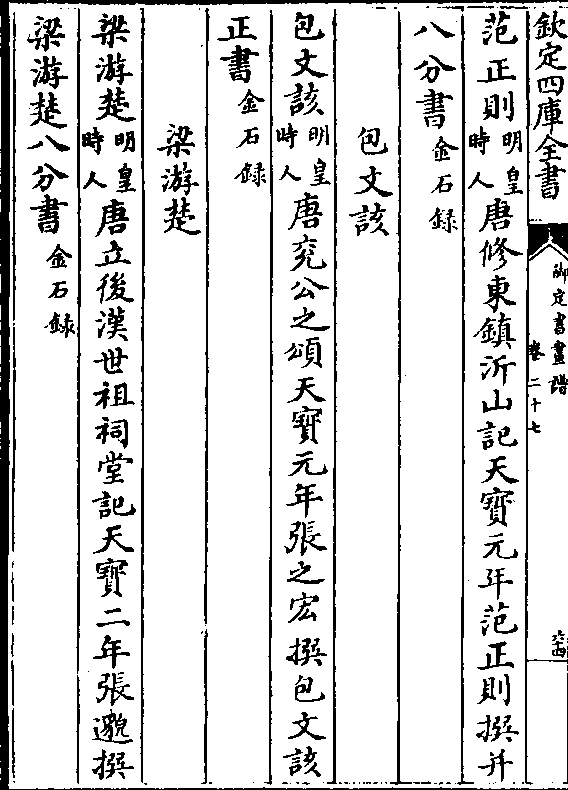 欽定四庫全書
御定書畫譜
卷二十七
范正則明皇時人唐修東鎮沂山記天寶元年范正則撰并
八分書金石録
包文該
包文該明皇時人唐兗公之頌天寶元年張之宏撰包文該
正書金石録
梁游楚
梁游楚明皇時人唐立後漢世祖祠堂記天寶二年張邈撰
梁游楚八分書金石録